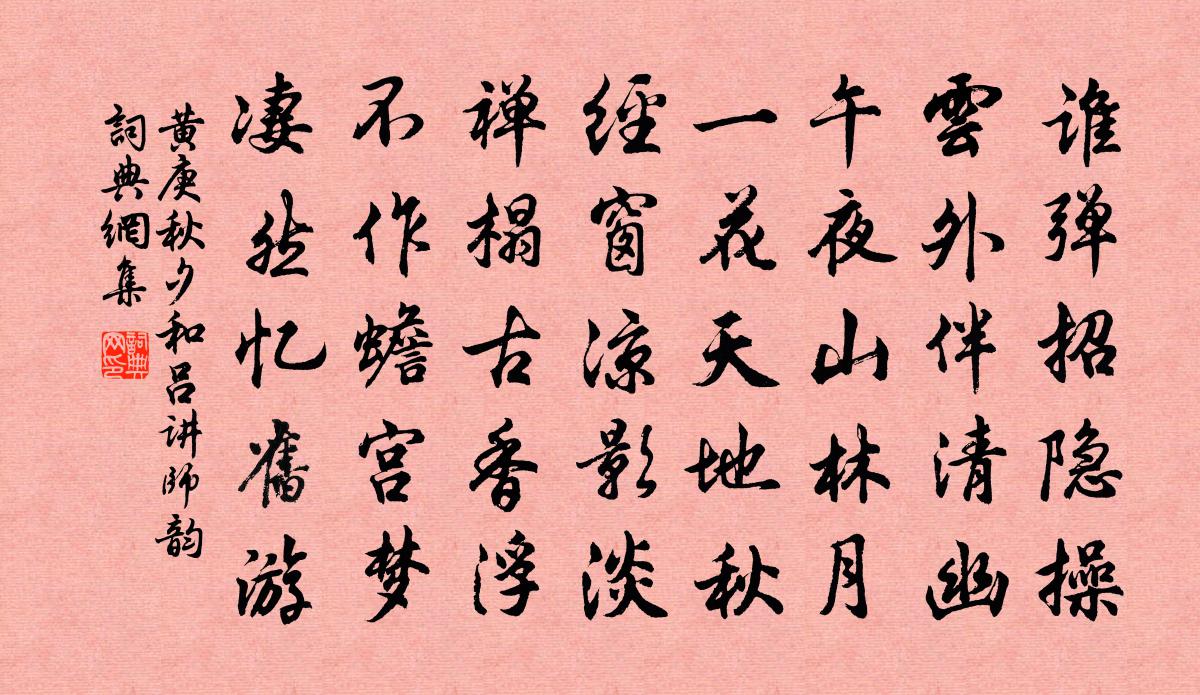 谁弹招隐操
雲外伴清幽
午夜山林月
一花天地秋
經窗凉影淡
禅榻古香浮
不作蟾宫梦
凄然忆舊游
黄庚秋夕和吕讲師韵
詞典網集
詞典网印